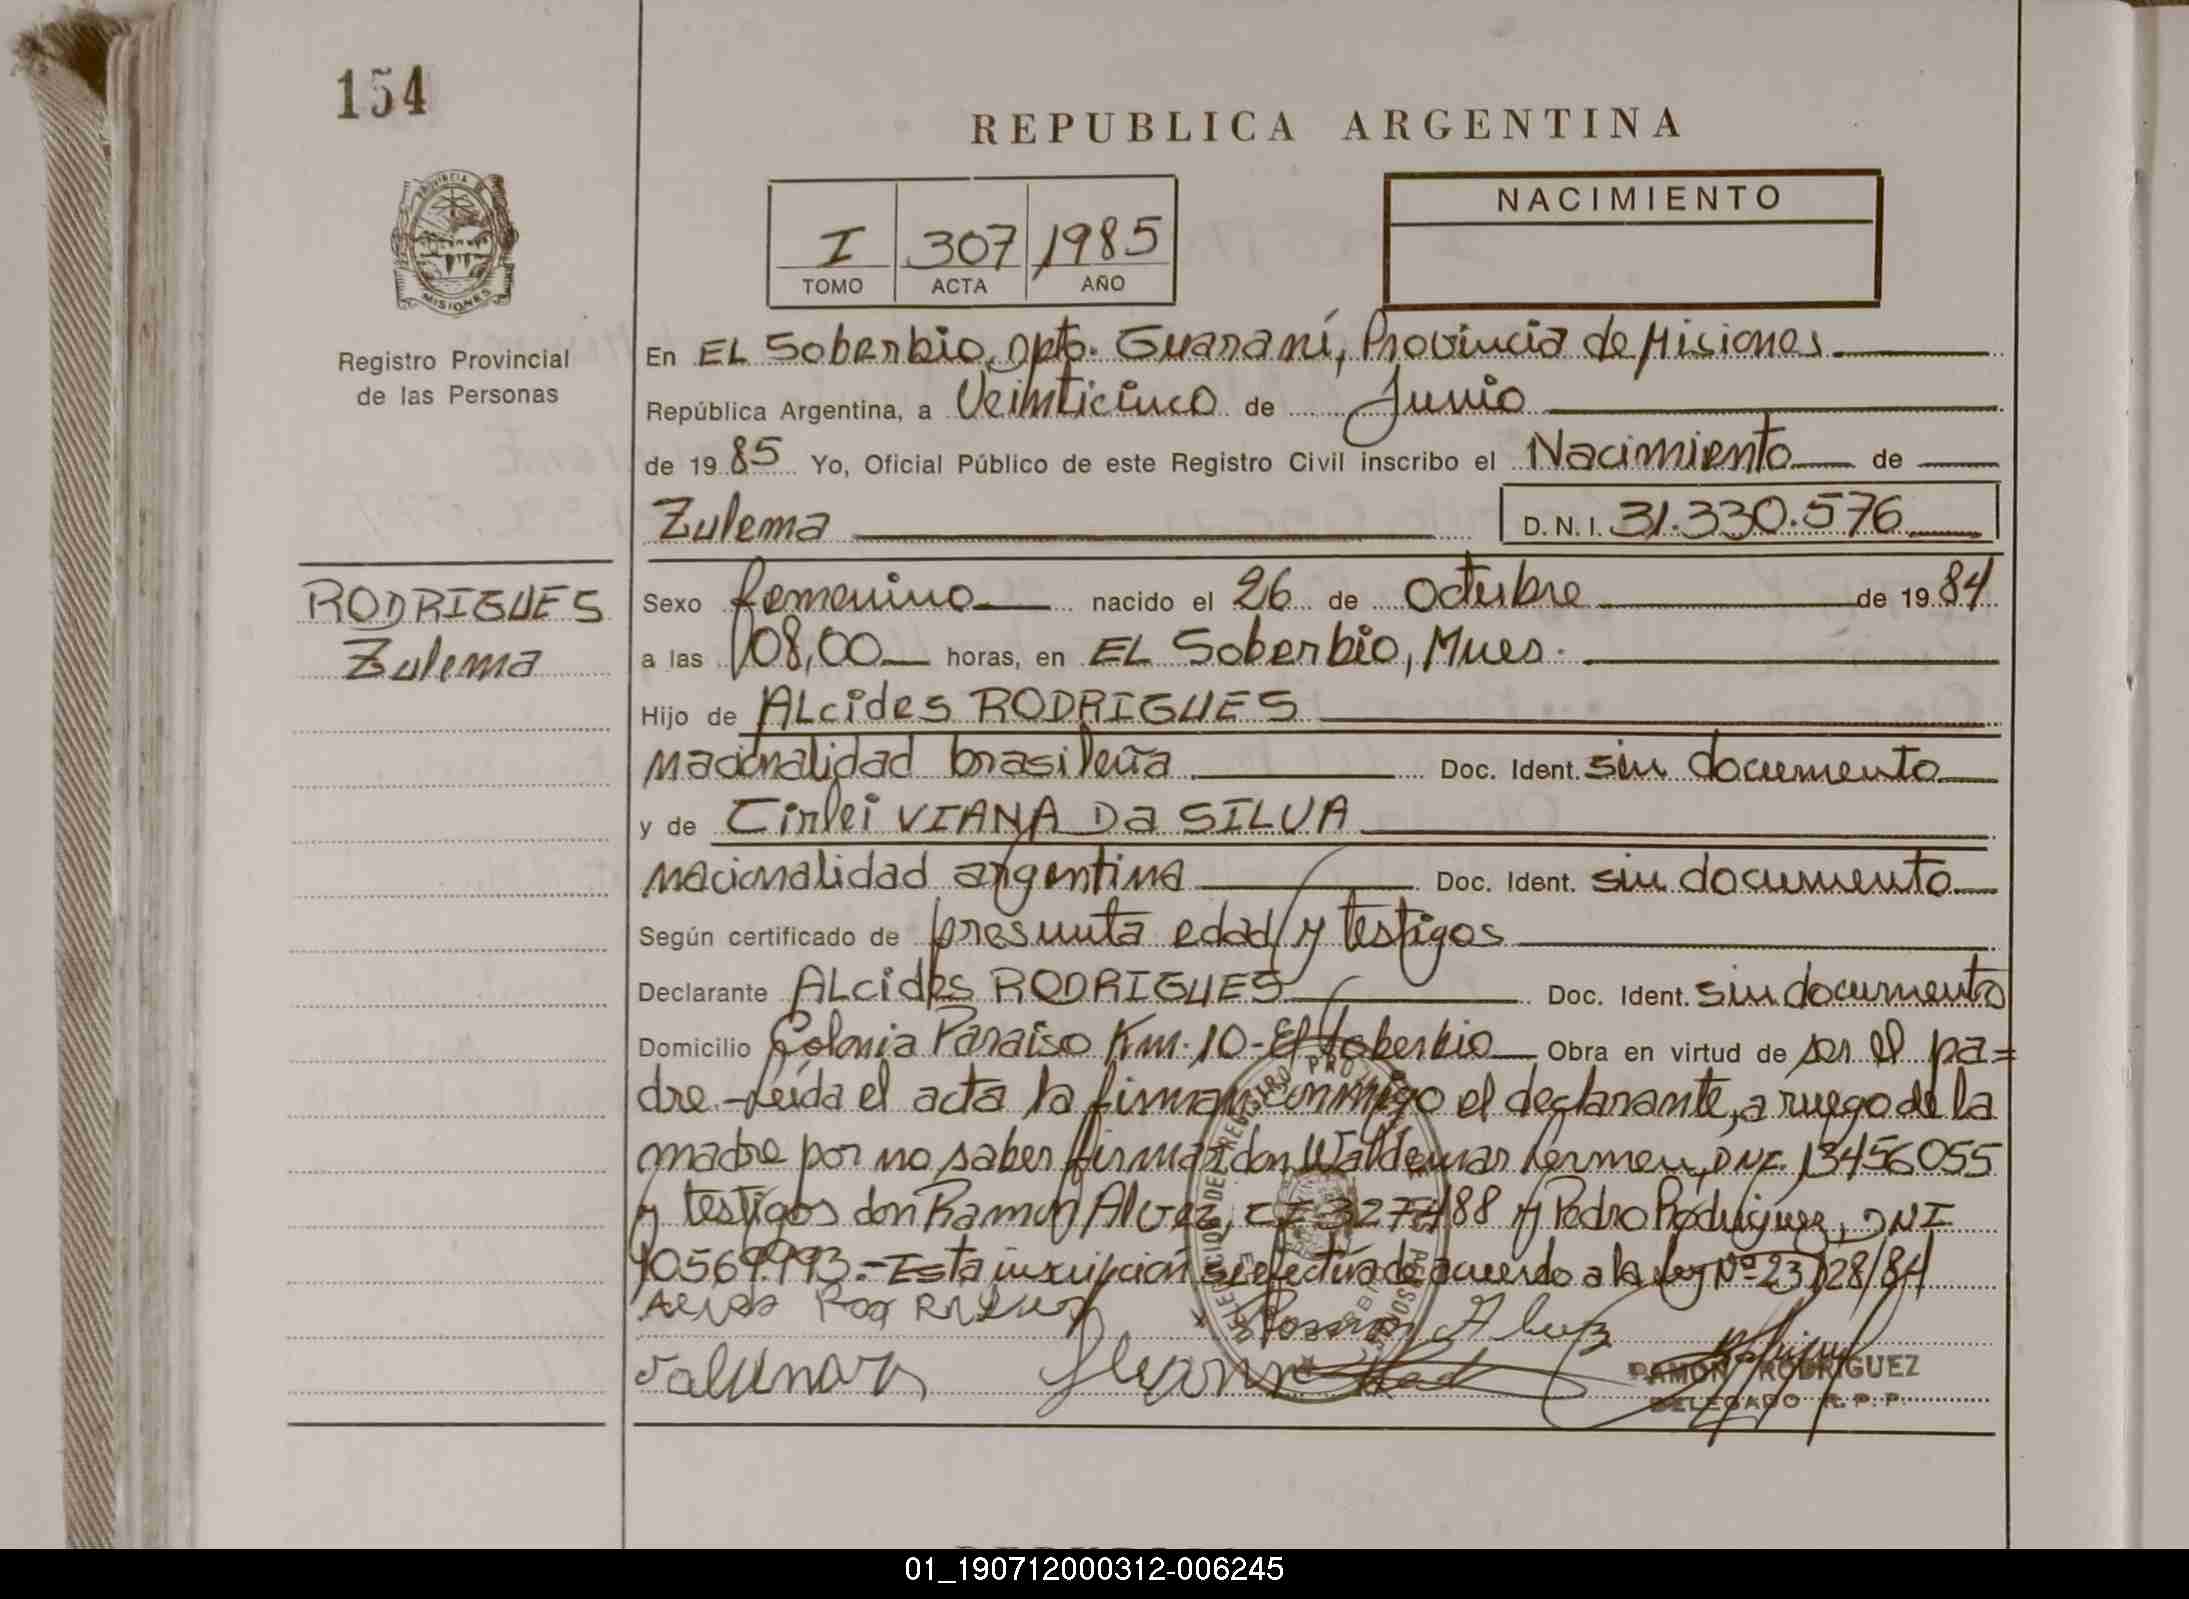 154
REPUBLICA ARGENTINA
PROVINCIA DE
MISIONES
Registro Provincial
de las Personas
I 307 1985
TOMO ACTA AÑO
NACIMIENTO
En EL Soberbio, Dpto. Guaraní, Provincia de Misiones
República Argentina, a Veinticinco de Junio
de 1985 Yo, Oficial Público de este Registro Civil inscribo el Nacimiento de
Zulema D.N.I. 31.330.576
RODRIGUES
Zulema
Sexo femenino nacido el 26 de Octubre de 1984
a las 08,00 horas, en EL Soberbio, Mnes.
Hijo de ALcides RODRIGUES
nacionalidad brasileña Doc. Ident. sin documento
y de Cirlei VIANA Da SILVA
nacionalidad argentina Doc. Ident. sin documento
Según certificado de presunta edad y testigos
Declarante ALcides RODRIGUES Doc. Ident. sin documento
Domicilio Colonia Paraiso Km. 10 - El Soberbio Obra en virtud de ser el pa=
dre.-Leída el acta la firman conmigo el declarante, a ruego de la
madre por no saber firmar don Waldemar DNI. 13456055
y testigos don Ramon Alvez, CI 327488 y Pedro Rodriguez, DNI
10569993.-Esta inscripción se efectúa de acuerdo a la ley Nº 23128/84
Ramon Alvez
RAMON RODRIGUEZ
DELEGADO R.P.P.
01_190712000312-006245